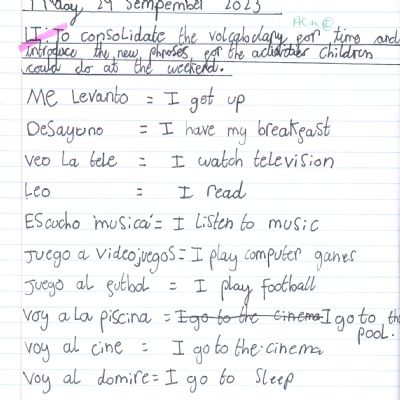 29 Sempember 2023
ACh
LI: To consolidate the volcabulary for time and
introduce the new phrases, for the activities children
could do at the weekend.
Me Levanto = I get up
Desayuno = I have my breakfast
Veo La tele = I watch television
Leo = I read
Escucho musica = I Listen to music
Juego a videojuegos = I play computer games
Juego al futbol = I play football
Voy a La piscina = I go to the cinema I go to the
pool.
Voy al cine = I go to the cinema
Voy al domire = I go to sleep